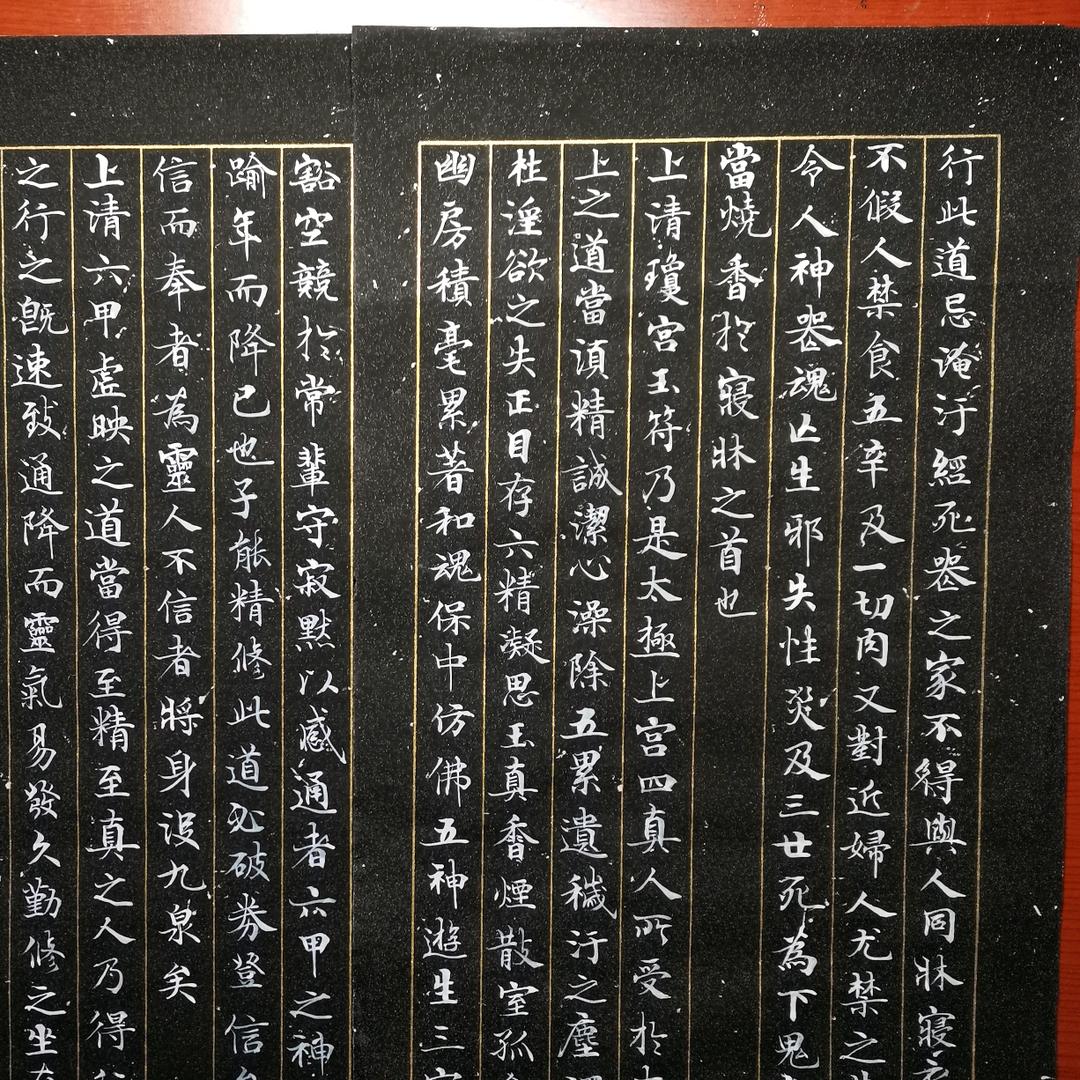 行此道忌淹汙經死喪之家不得與人同牀寢
不假人禁食五辛及一切肉又對近婦人尤禁之
令人神喪魂亾生邪失性災及三世死為下鬼
當燒香於寢牀之首也
上清瓊宮玉符乃是太極上宮四真人所受於
上之道當須精誠潔心澡除五累遺穢汙之塵
杜淫欲之失正目存六精凝思玉真香煙散室孤
幽房積毫累著和魂保中仿佛五神遊生三
豁空競於常輩守寂默以感通者六甲之神
踰年而降已也子能精修此道必破券登信
信而奉者為靈人不信者將身沒九泉矣
上清六甲虛映之道當得至精至真之人乃得
之行之旣速致通降而靈氣易發久勤修之坐